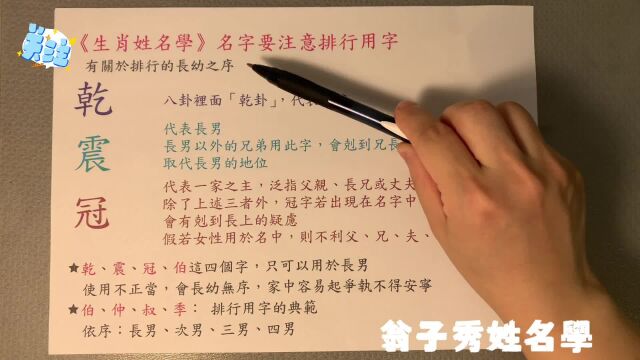 关注
《生肖姓名學》名字要注意排行用字
有關於排行的長幼之序
乾
八卦裡面「乾卦」,代表
震
代表長男
長男以外的兄弟用此字,會剋到兄長
取代長男的地位
冠
代表一家之主,泛指父親、長兄或丈夫
除了上述三者外,冠字若出現在名字中
會有剋到長上的疑慮
假若女性用於名中,則不利父、兄、夫、
★乾、震、冠、伯這四個字,只可以用於長男
使用不正當,會長幼無序,家中容易起爭執不得安寧
★伯、仲、叔、季:排行用字的典範
依序:長男、次男、三男、四男
翁子秀姓名學